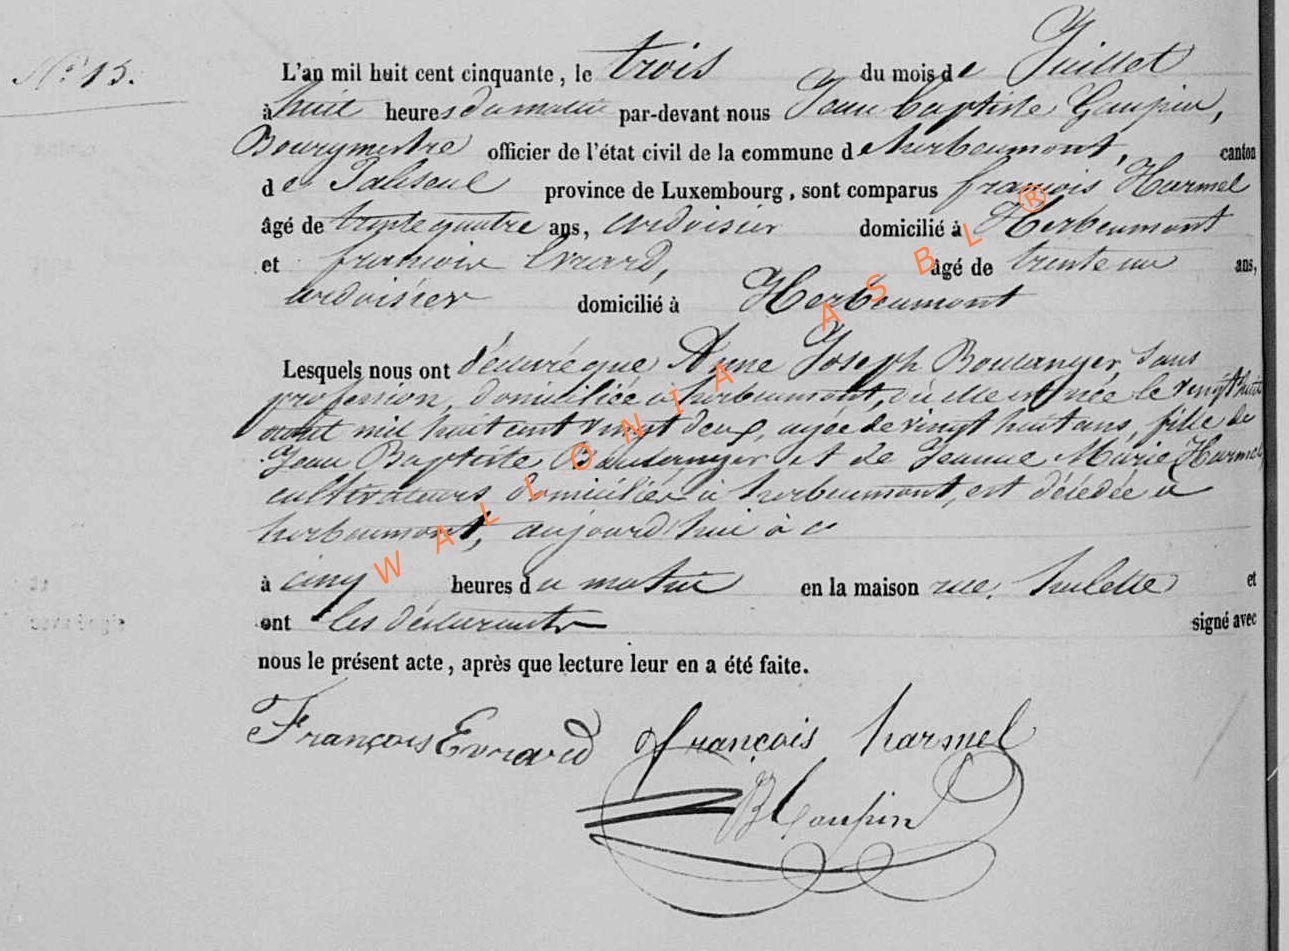 N° 15.
L'an mil huit cent cinquante, le trois du mois de Juillet
à huit heures du matin par-devant nous Jean Baptiste Gaupin,
Bourgmestre officier de l'état civil de la commune d'herbeumont, canton
de Paliseul province de Luxembourg, sont comparus françois Harmel
âgé de trente quatre ans, ardoisier domicilié à Herbeumont
et françois Evrard, âgé de trente un ans,
ardoisier domicilié à Herbeumont
Lesquels nous ont déclaré que Anne Joseph Boulanger, sans
profession, domiciliée à herbeumont, où elle est née le vingt huit
aout mil huit cent vingt deux, agée de vingt huit ans, fille de
Jean Baptiste Boulanger et de Jeanne Marie Harmel,
cultivateurs domiciliés à herbeumont, est décédée à
herbeumont, aujourd'hui à c
à cinq heures du matin en la maison rue et
ont les déclarants signé avec
nous le présent acte, après que lecture leur en a été faite.
François Evrard françois harmel
JB Gaupin
WALLONIA ASBL ®